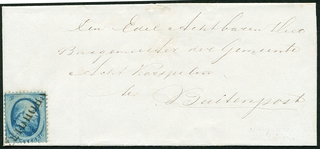 Den Edel Achtbaren Heer
Burgemeester der Gemeente
Achtkarspelen
te Buitenpost